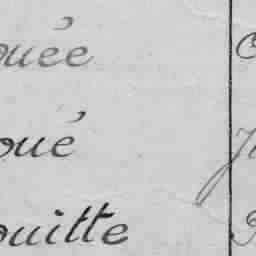 ouée
oué
ouitte